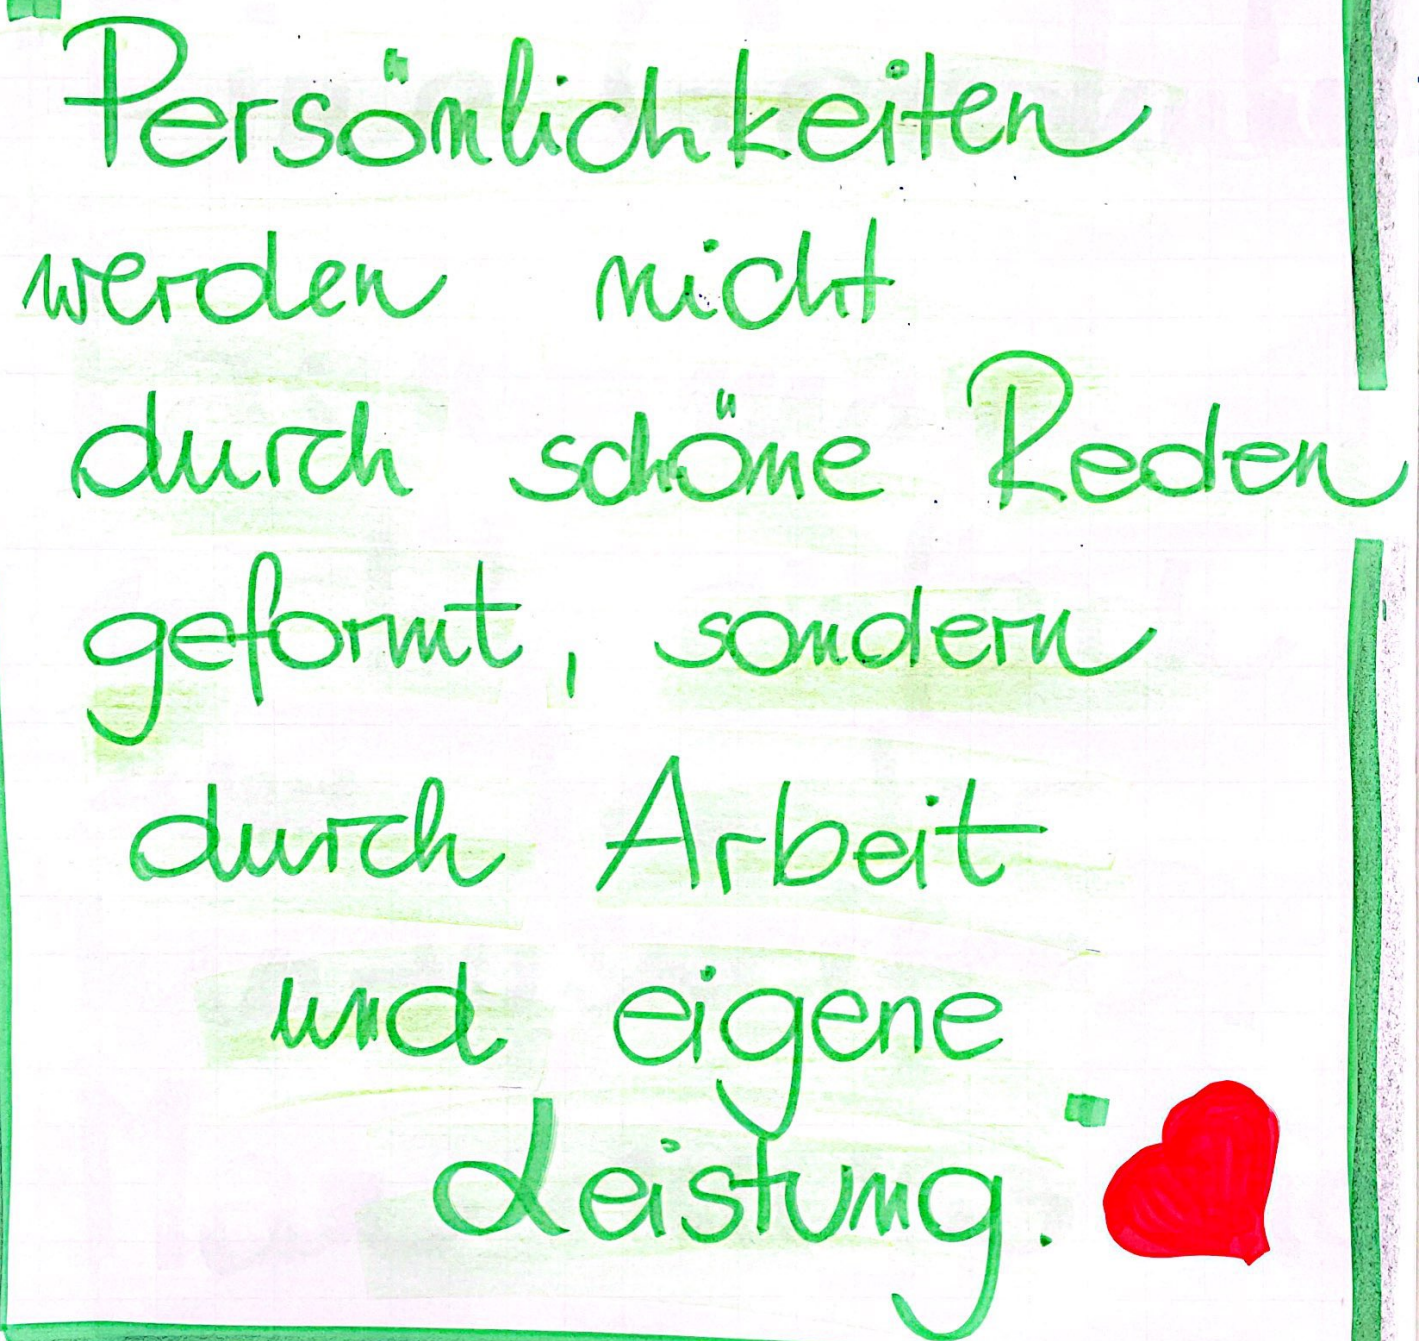 "Persönlichkeiten
werden nicht
durch schöne Reden
geformt, sondern
durch Arbeit
und eigene
Leistung."